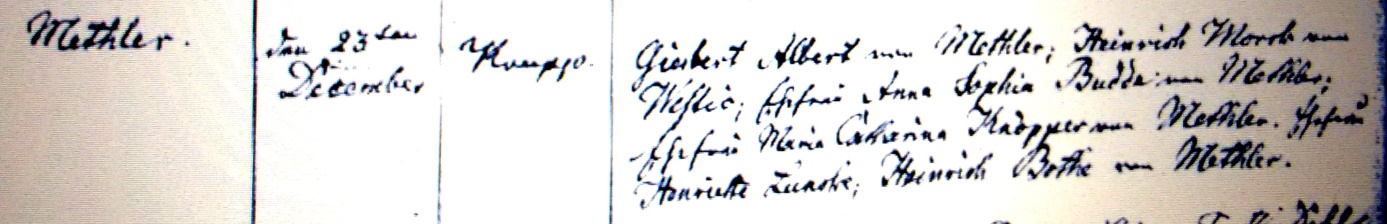 Methler.
den 23ten
December
Knuppe.
Giesbert Albert von Methler; Heinrich Morck von
Westic; Ehefrau Anna Sophia Budde von Methler;
Ehefrau Maria Catharina Knöpper von Methler. Ehefrau
Henriette Heinrich Bothe von Methler.